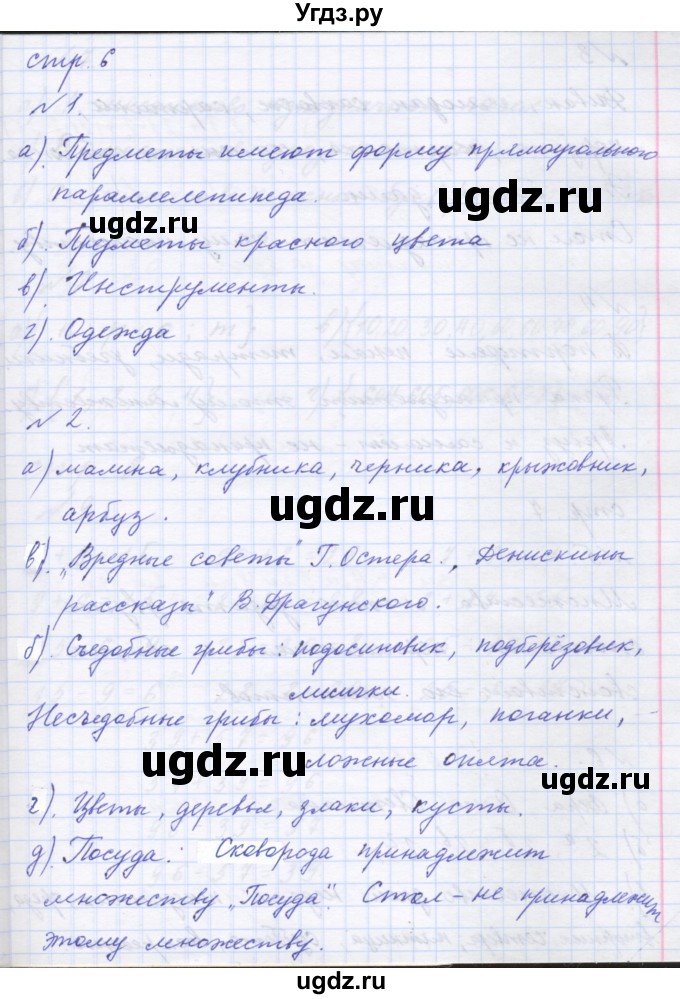 Угдз.ру
стр. 6
№ 1.
а). Предметы имеют форму прямоугольного
параллелепипеда.
ugdz.ru ugdz.ru
б). Предметы красного цвета
в). Инструменты.
г). Одежда
№ 2.
а) малина, клубника, черника, крыжовник,
арбуз.
ugdz.ru
в). „Вредные советы" Г. Остера. „Денискины
рассказы" В. Драгунского.
ugdz.ru ugdz.ru
б). Съедобные грибы: подосиновик, подберёзовик,
лисички.
Несъедобные грибы: мухомор, поганки,
ugdz.ru
ложные опята.
ugdz.ru
г). Цветы, деревья, злаки, кусты.
д). Посуда. Сковорода принадлежит
ugdz.ru
множеству „Посуда". Стол – не принадлежит
этому множеству.
ugdz.ru